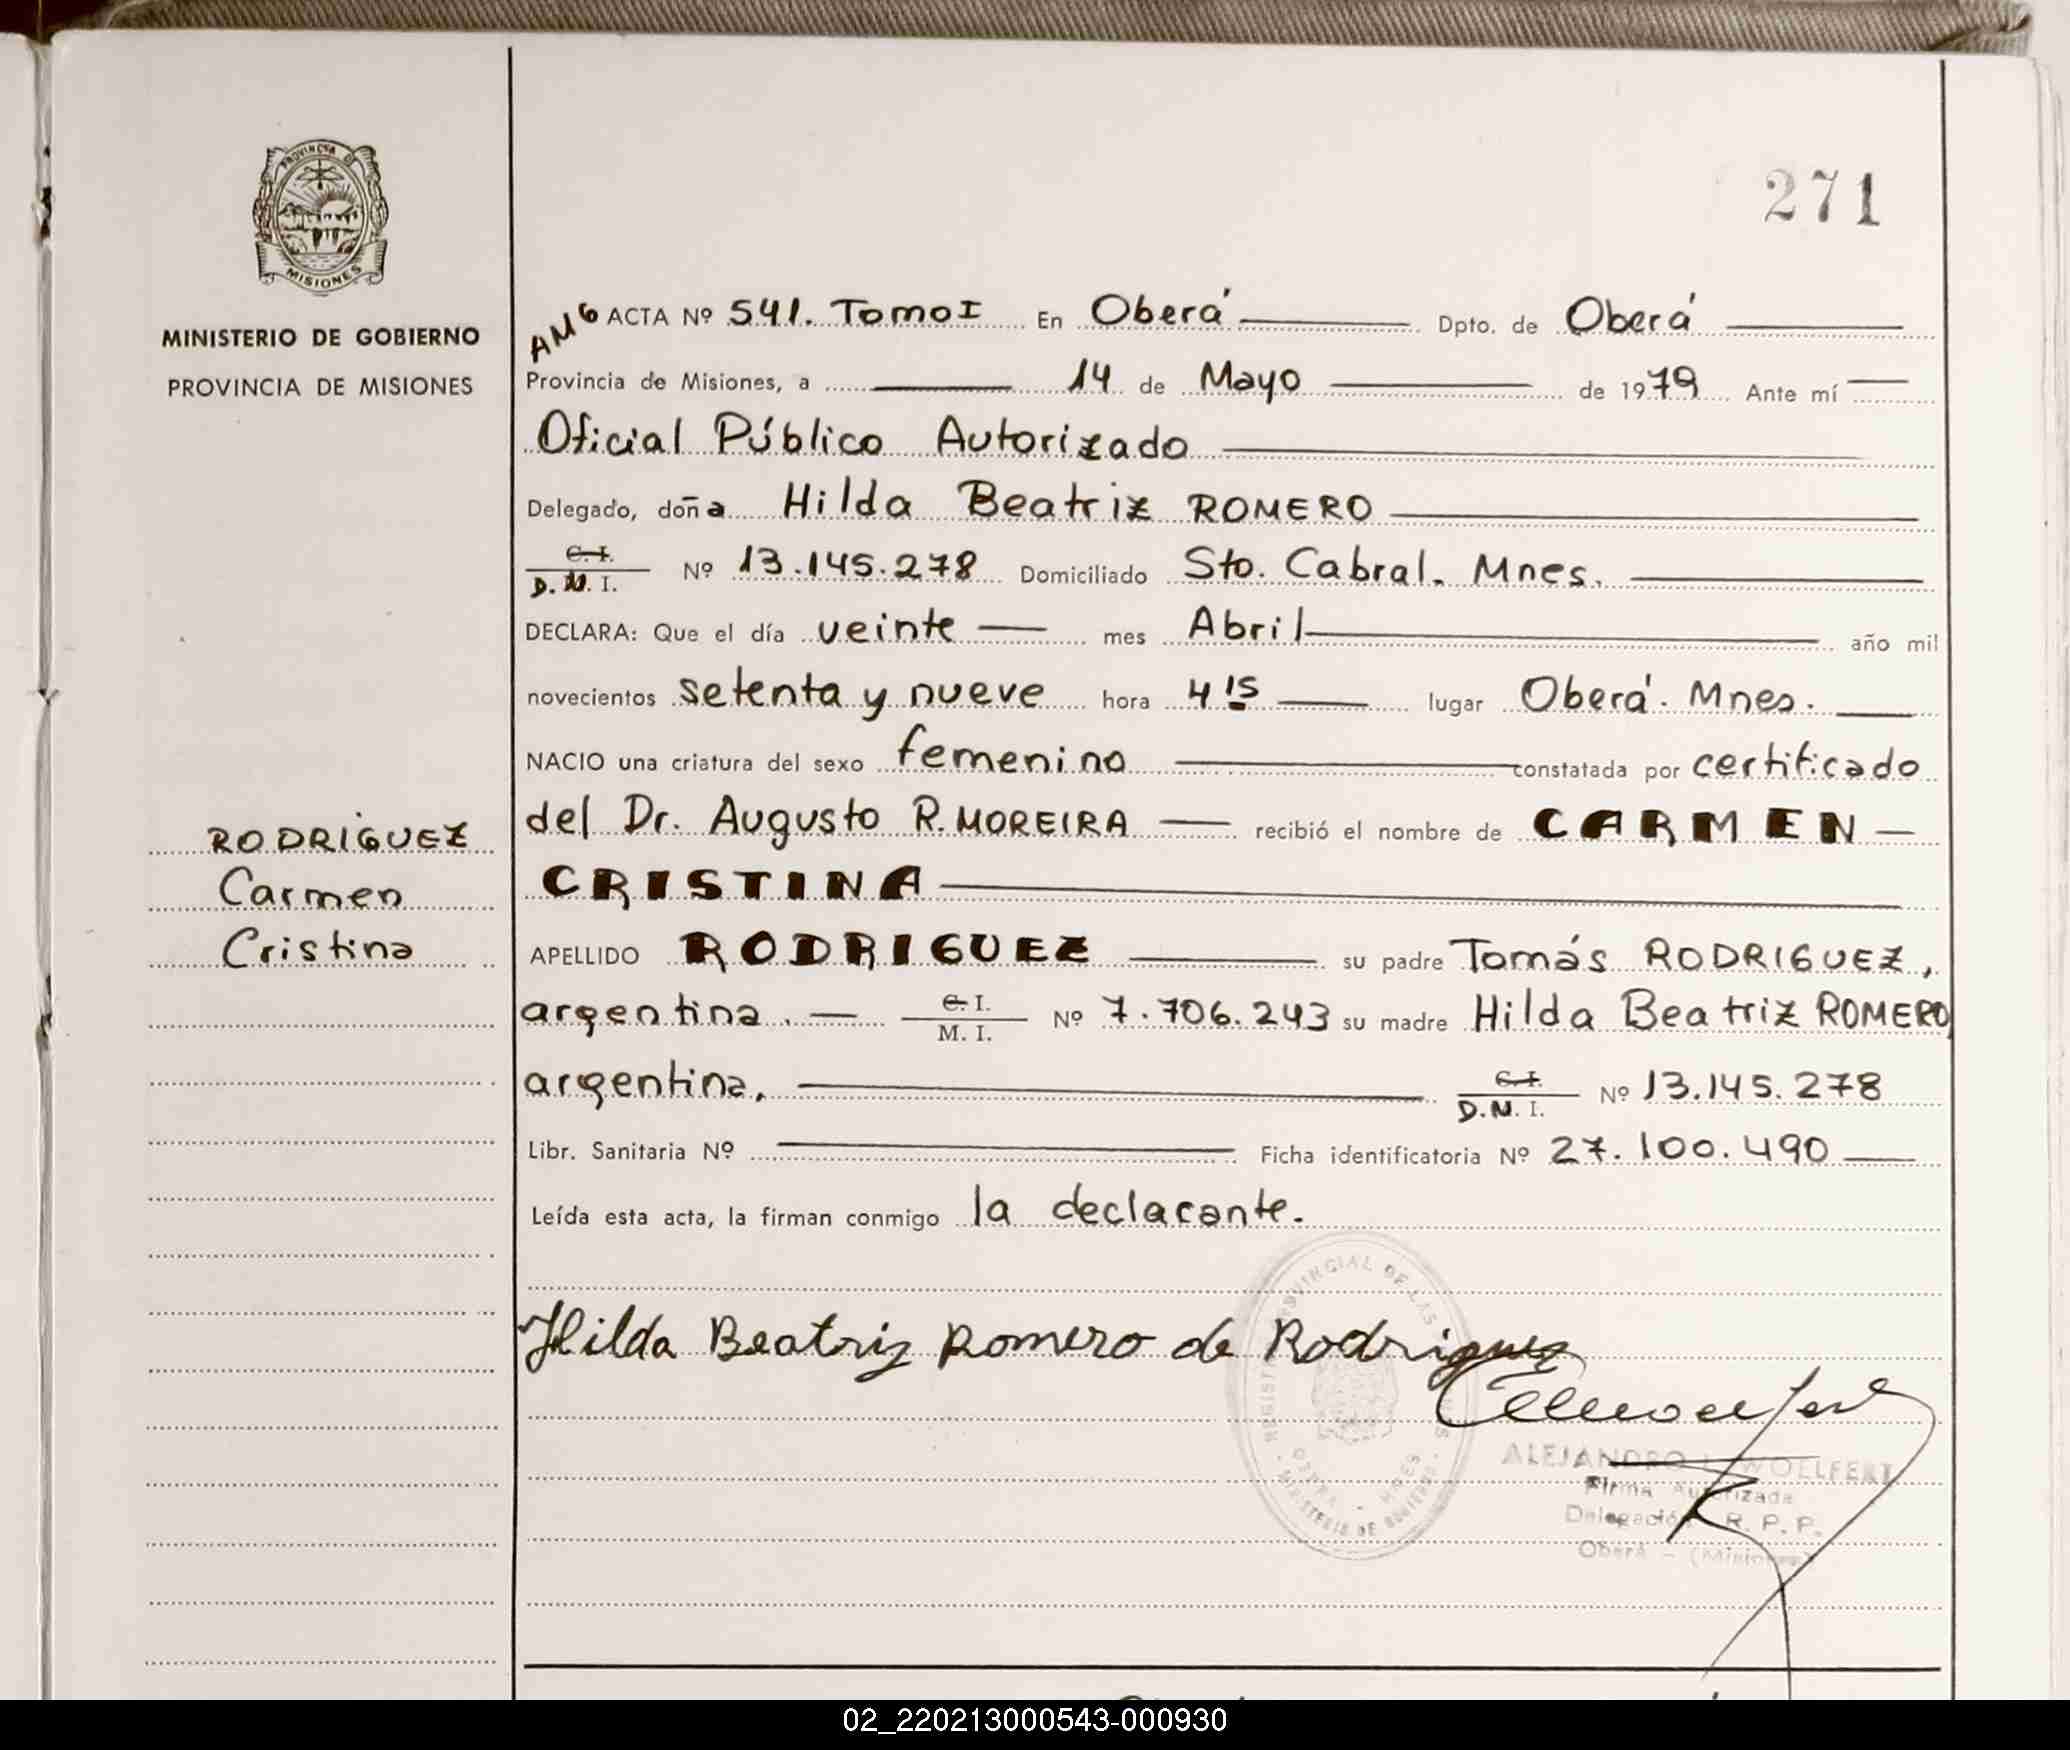 271
PROVINCIA DE
MISIONES
MINISTERIO DE GOBIERNO
PROVINCIA DE MISIONES
AMG ACTA Nº 541. Tomo I En Oberá Dpto. de Oberá
Provincia de Misiones, a 14 de Mayo de 1979 Ante mí
Oficial Público Autorizado
Delegado, doña Hilda Beatriz ROMERO
C. I.
D. N. I. Nº 13.145.278 Domiciliado Sto. Cabral. Mnes.
DECLARA: Que el día veinte mes Abril año mil
novecientos setenta y nueve hora 4 15 lugar Oberá. Mnes.
NACIO una criatura del sexo femenino constatada por certificado
del Dr. Augusto R. MOREIRA recibió el nombre de CARMEN
CRISTINA
RODRIGUEZ
Carmen
Cristina
APELLIDO RODRIGUEZ su padre Tomás RODRIGUEZ,
argentina. C. I.
M. I. Nº 7.706.243 su madre Hilda Beatriz ROMERO
argentina. C. I.
D.N. I. Nº 13.145.278
Libr. Sanitaria Nº Ficha identificatoria Nº 27.100.490
Leída esta acta, la firman conmigo la declarante.
Hilda Beatriz Romero de Rodriguez
PROVINCIAL DE LAS
MINISTERIO DE GOBIERNO
OBERA - MNES
ALEJANDRO WOELFERT
Firma Autorizada
Delegación R. P. P.
Oberá - (Misiones)
02_220213000543-000930